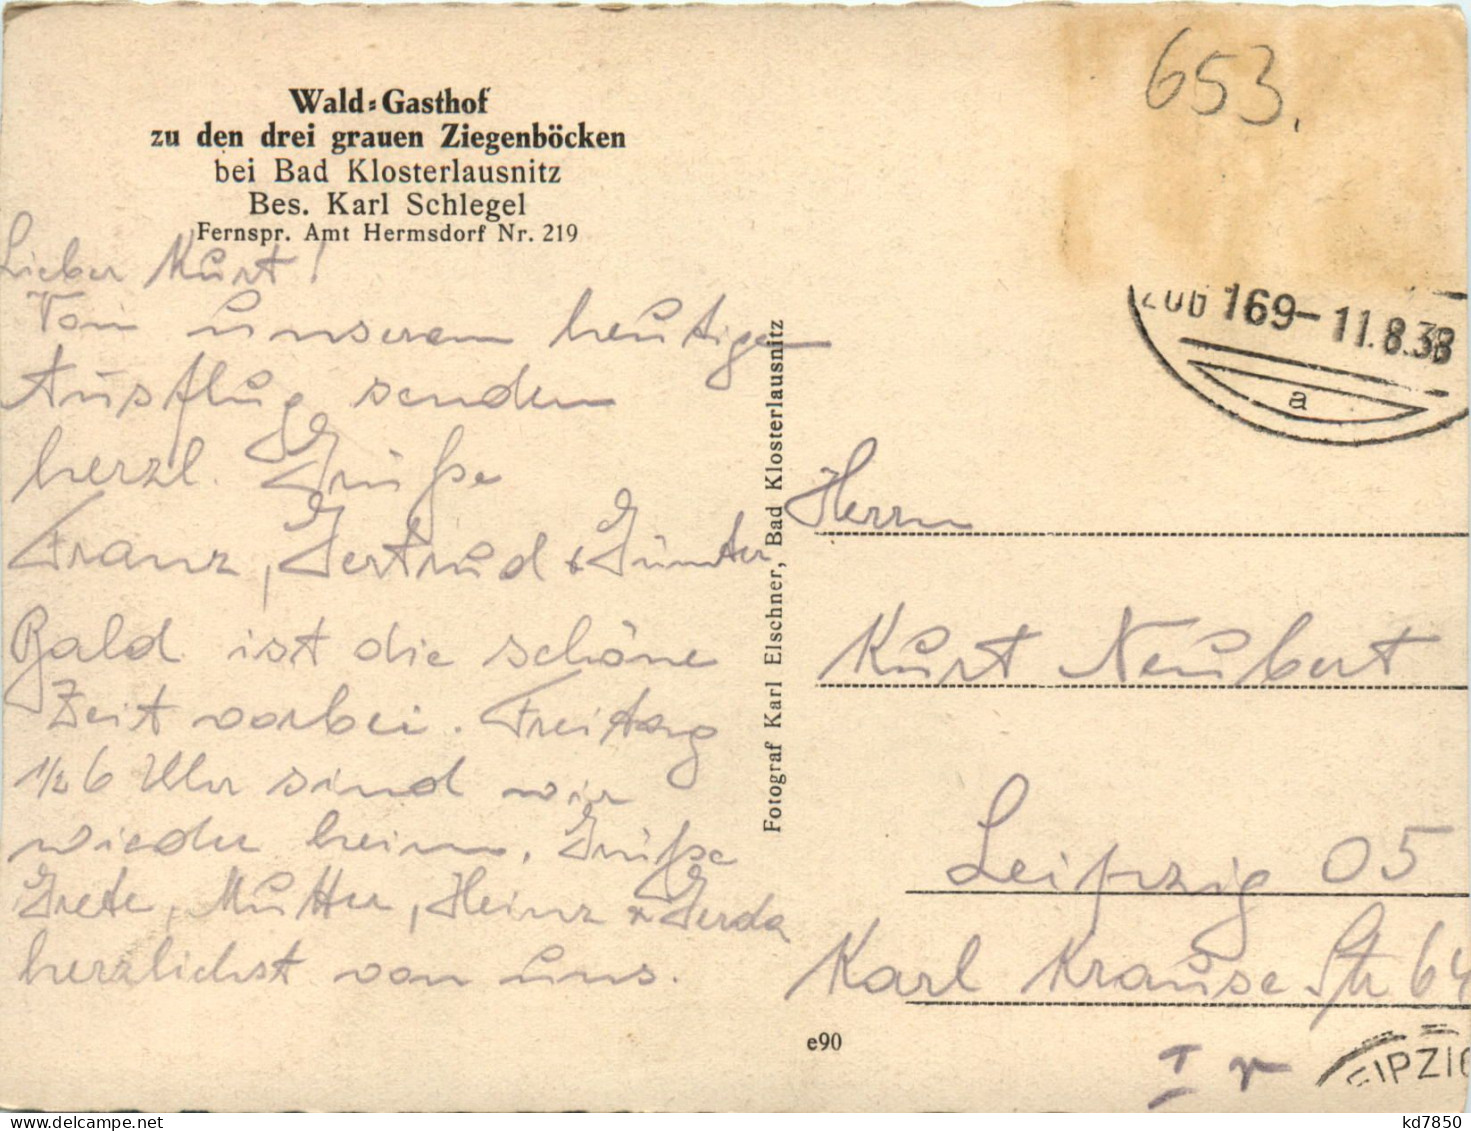 653.
Wald-Gasthof
zu den drei grauen Ziegenböcken
bei Bad Klosterlausnitz
Bes. Karl Schlegel
Fernspr. Amt Hermsdorf Nr. 219
Lieber Kurt!
Von unserem heutigen
Ausflug senden
herzl. Grüße
Franz, Gertrud & Günter
Bald ist die schöne
Zeit vorbei. Freitag
1/2 6 Uhr sind wir
wieder heim. Grüße
Grete, Mutter, Heinz & Gerda
herzlichst von uns.
Fotograf Karl Elschner, Bad Klosterlausnitz
ZUG 169-11.8.38
a
Herrn
Kurt Neubert
Leipzig O5
Karl Krause Str 64
e90
I r
EIPZIG
kd7850